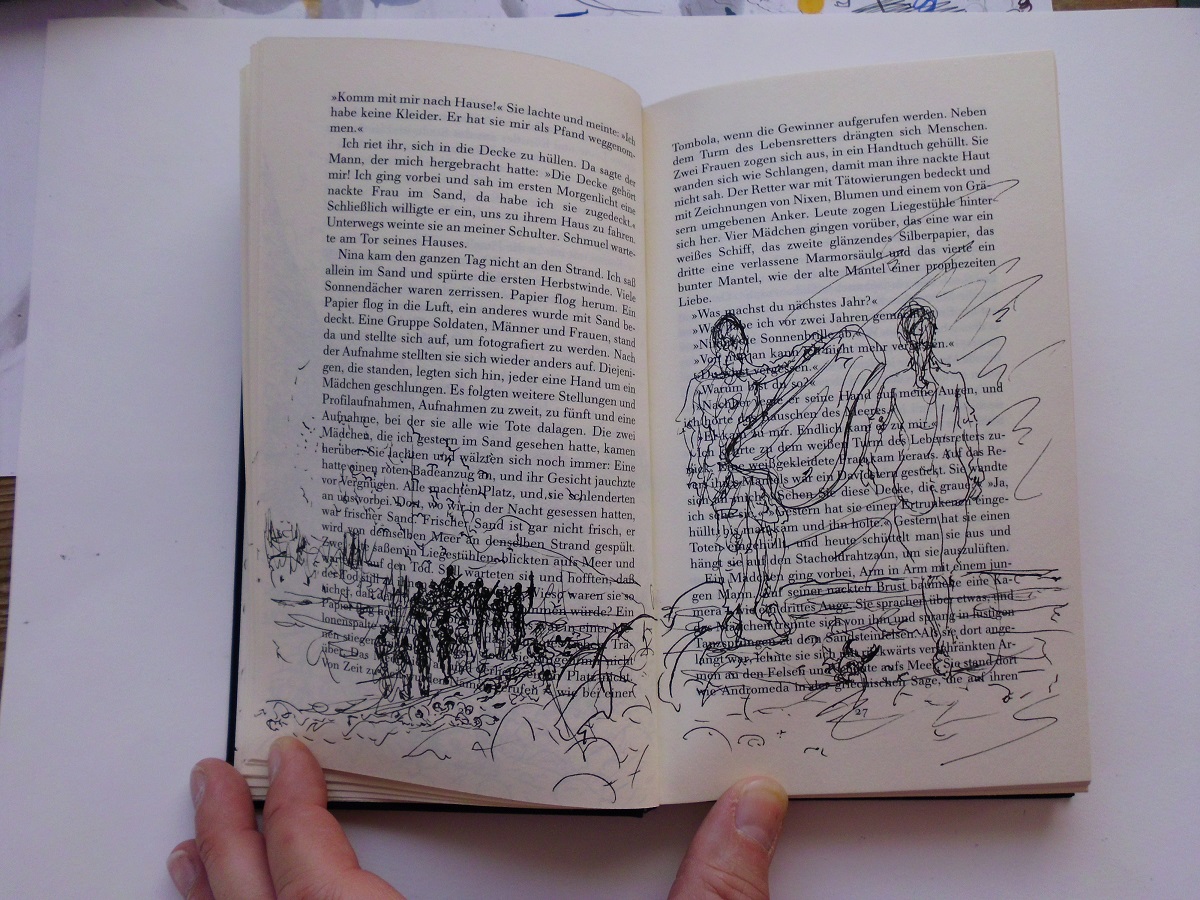 »Komm mit mir nach Hause!« Sie lachte und meinte: »Ich
habe keine Kleider. Er hat sie mir als Pfand weggenom-
men.«
Ich riet ihr, sich in die Decke zu hüllen. Da sagte der
Mann, der mich hergebracht hatte: »Die Decke gehört
mir! Ich ging vorbei und sah im ersten Morgenlicht eine
nackte Frau im Sand, da habe ich sie zugedeckt.«
Schließlich willigte er ein, uns zu ihrem Haus zu fahren.
Unterwegs weinte sie an meiner Schulter. Schmuel warte-
te am Tor seines Hauses.
Nina kam den ganzen Tag nicht an den Strand. Ich saß
allein im Sand und spürte die ersten Herbstwinde. Viele
Sonnendächer waren zerrissen. Papier flog herum. Ein
Papier flog in die Luft, ein anderes wurde mit Sand be-
deckt. Eine Gruppe Soldaten, Männer und Frauen, stand
da und stellte sich auf, um fotografiert zu werden. Nach
der Aufnahme stellten sie sich wieder anders auf. Diejeni-
gen, die standen, legten sich hin, jeder eine Hand um ein
Mädchen geschlungen. Es folgten weitere Stellungen und
Profilaufnahmen, Aufnahmen zu zweit, zu fünft und eine
Aufnahme, bei der sie alle wie Tote dalagen. Die zwei
Mädchen, die ich gestern im Sand gesehen hatte, kamen
herüber. Sie lachten und wälzten sich noch immer: Eine
hatte einen roten Badeanzug an, und ihr Gesicht jauchzte
vor Vergnügen. Alle machten Platz, und sie schlenderten
an uns vorbei. Dort, wo wir in der Nacht gesessen hatten,
war frischer Sand. Frischer Sand ist gar nicht frisch, er
wird von demselben Meer an denselben Strand gespült.
Zwei saßen in Liegestühlen, blickten aufs Meer und
auf den Tod. Sie warteten sie und hofften, daß
der Tod Wieso waren sie so
würde? Ein
Papier flog
in einer
nen stiegen
über. Das nicht
von Zeit zu Platz nicht,
wie bei einer
Tombola, wenn die Gewinner aufgerufen werden. Neben
dem Turm des Lebensretters drängten sich Menschen.
Zwei Frauen zogen sich aus, in ein Handtuch gehüllt. Sie
wanden sich wie Schlangen, damit man ihre nackte Haut
nicht sah. Der Retter war mit Tätowierungen bedeckt und
mit Zeichnungen von Nixen, Blumen und einem von Grä-
sern umgebenen Anker. Leute zogen Liegestühle hinter-
sich her. Vier Mädchen gingen vorüber, das eine war ein
weißes Schiff, das zweite glänzendes Silberpapier, das
dritte eine verlassene Marmorsäule und das vierte ein
bunter Mantel, wie der alte Mantel einer prophezeiten
Liebe.
»Was machst du nächstes Jahr?«
»Was habe ich vor zwei Jahren gemacht?«
»Nimm die Sonnenbrille ab.«
»Von kann ich nicht mehr vergessen.«
»Du hast vergessen.«
»Warum bist du so?«
»Nachher legte er seine Hand auf meine Augen, und
ich hörte das Rauschen des Meeres.
»Er kam zu mir. Endlich kam er zu mir.«
Ich kehrte zu dem weißen Turm des Lebensretters zu-
rück. Eine weißgekleidete Frau kam heraus. Auf das Re-
vers ihres Mantels war ein Davidstern gestickt. Sie wandte
sich an mich: »Sehen Sie diese Decke, die graue?« »Ja,
ich sehe sie.« »Gestern hat sie einen Ertrunkenen einge-
hüllt, bis man kam und ihn holte.« Gestern hat sie einen
Toten eingehüllt, und heute schüttelt man sie aus und
hängt sie auf den Stacheldrahtzaun, um sie auszulüften.
Ein Mädchen ging vorbei, Arm in Arm mit einem jun-
gen Mann. Auf seiner nackten Brust baumelte eine Ka-
mera wie ein drittes Auge. Sie sprachen über etwas, und
das Mädchen trennte sich von ihm und sprang in lustigen
Tanzsprüngen zu dem Sandsteinfelsen. Als sie dort ange-
langt war, lehnte sie sich mit rückwärts verschränkten Ar-
men an den Felsen und schaute aufs Meer. Sie stand dort
wie Andromeda in der griechischen Sage, die auf ihren
27